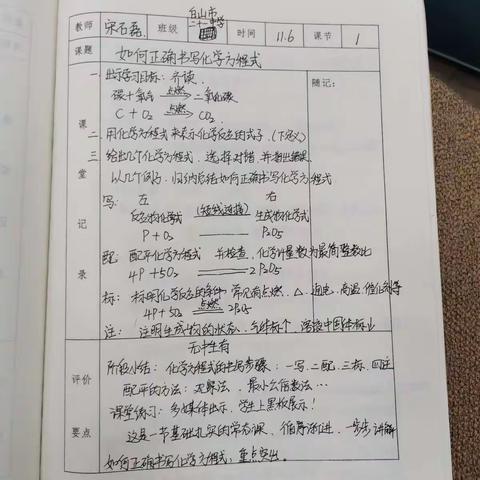 教师 宋石磊 班级 白山市二十一中学 时间 11.6 课节 1
课题 如何正确书写化学方程式
课堂记录
随记:
一、出示学习目标:齐读.
碳+氧气 点燃→ 二氧化碳
C + O₂ 点燃→ CO₂
二、用化学方程式来表示化学反应的式子.(下定义)
三、给出几个化学方程式,选择对错并指出错误.
以几个例子,归纳总结如何正确书写化学方程式
写: 左 右
反应物化学式 (短线连接) 生成物化学式
P + O₂ —— P₂O₅
配: 配平化学方程式 并检查,化学计量数为最简整数比
4P + 5O₂ —— 2P₂O₅
标: 标明化学反应的条件 常见有点燃、△、通电、高温、催化剂等
4P + 5O₂ 点燃 2P₂O₅
注: 注明生成物的状态,气体标↑,溶液中固体标↓
无中生有
评价要点
阶段小结:化学方程式的书写步骤:一写、二配、三标、四注
配平的方法:观察法、最小公倍数法…
课堂练习:多媒体出示,学生上黑板展示!
这是一节基础扎实的常态课,循序渐进,一步步讲解
如何正确书写化学方程式,重点突出。